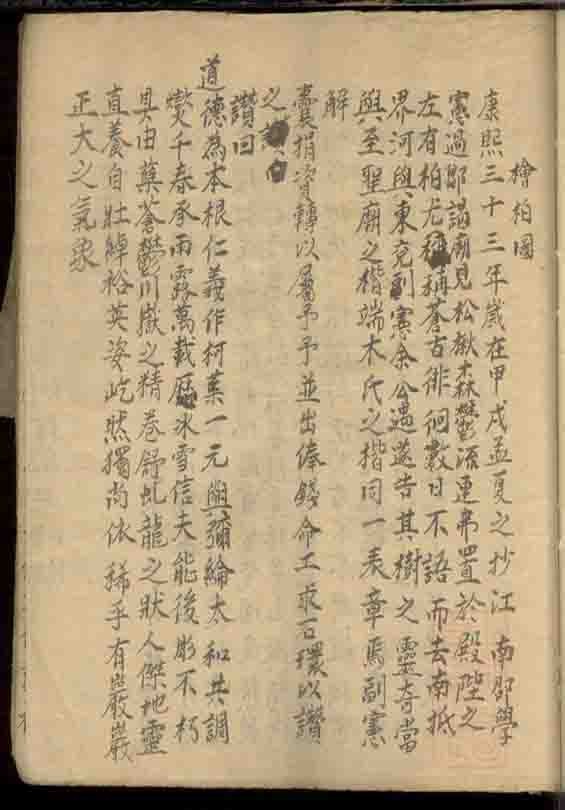 檜柏圖
康熙三十三年歲在甲戌孟夏之抄江南邵學
憲過鄒謁廟見松楸森鬱流連弗置於殿陛之
左有柏尤稱蒼古徘徊數日不語而去南抵
界河與東兗副憲余公遇遂告其樹之靈奇當
與至聖廟之楷端木氏之楷同一表章焉副憲
解
囊捐資轉以屬予予並出俸錢命工求石環以讚
之
讚曰
道德為本根仁義作柯葉一元與彌綸太和共調
燮千春承雨露萬載厯冰雪信夫能後彫不朽
具由蒼鬱川嶽之精卷舒虬龍之狀人傑地靈
直養自壯綽裕英姿屹然獨尚依稀乎有巖巖
正大之氣象